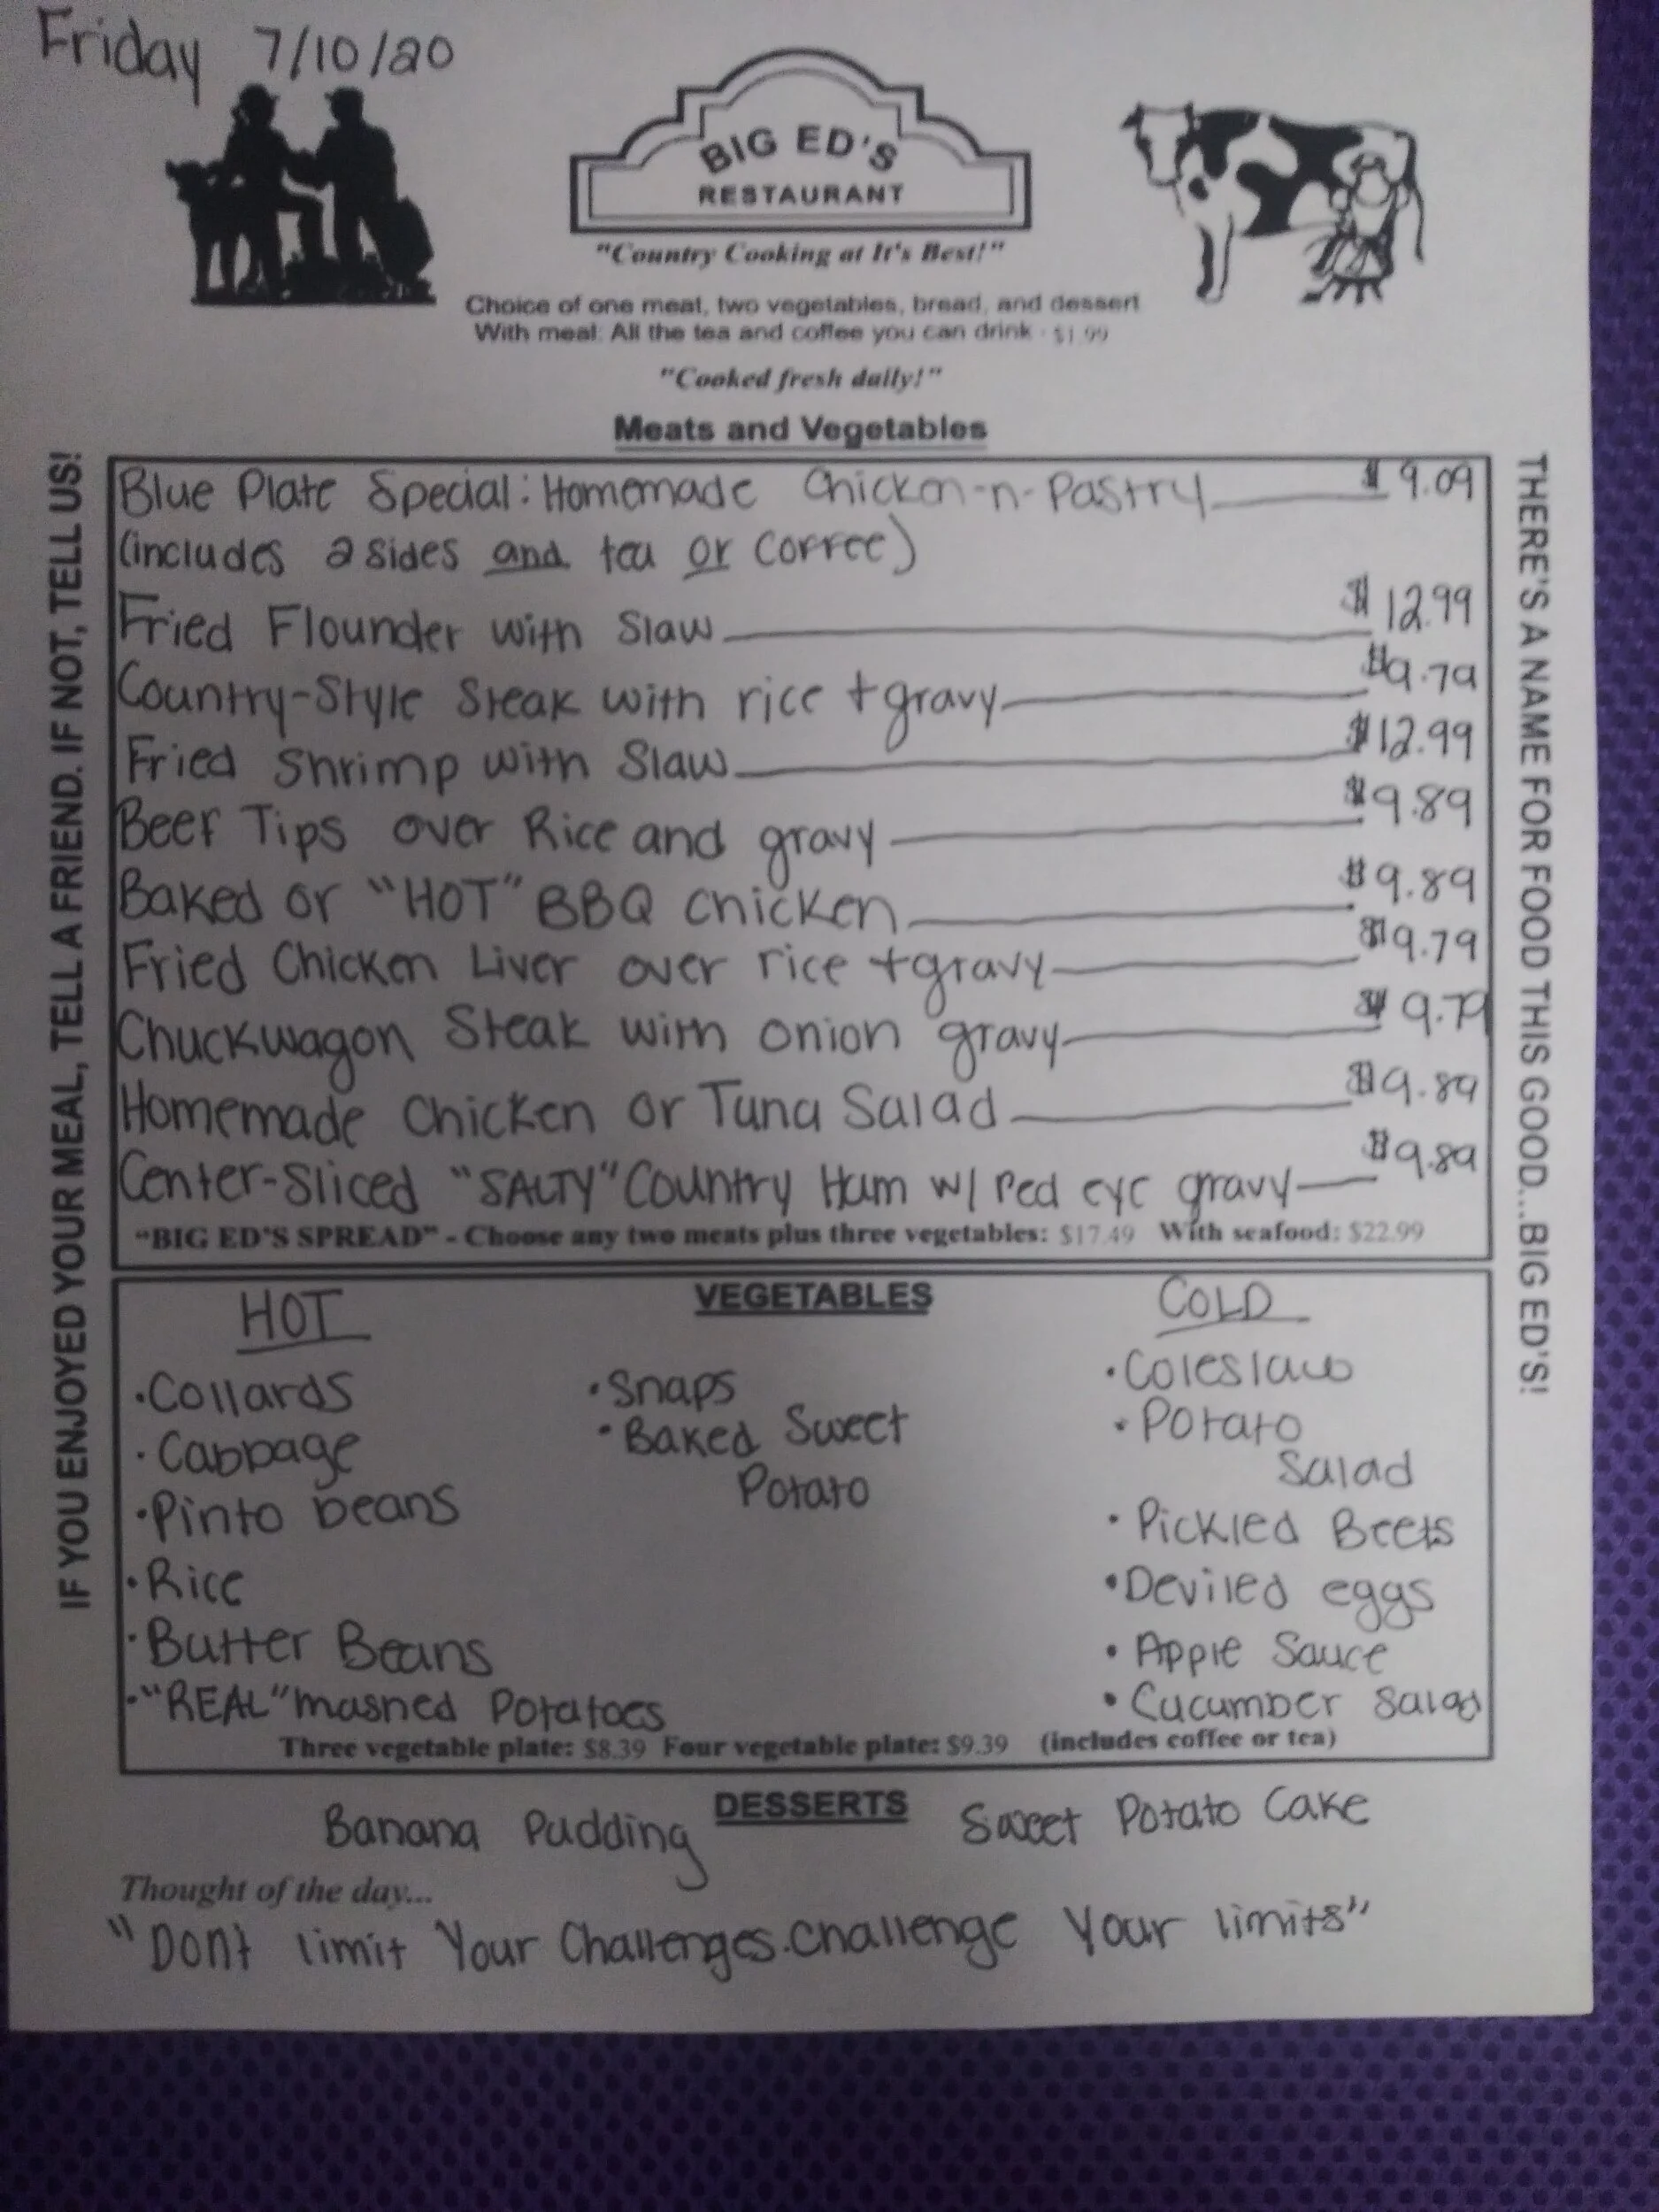 Friday 7/10/20
BIG ED'S
RESTAURANT
"Country Cooking at It's Best!"
Choice of one meat, two vegetables, bread, and dessert
With meal: All the tea and coffee you can drink - $1.99
"Cooked fresh daily!"
Meats and Vegetables
IF YOU ENJOYED YOUR MEAL, TELL A FRIEND. IF NOT, TELL US!
Blue Plate Special: Homemade Chicken-n-Pastry $9.09
(includes 2 sides and tea or coffee)
Fried Flounder with Slaw $12.99
Country-Style Steak with rice + gravy $9.79
Fried Shrimp with Slaw $12.99
Beef Tips over Rice and gravy $9.89
Baked or "HOT" BBQ chicken $9.89
Fried Chicken Liver over rice + gravy $9.79
Chuckwagon Steak with onion gravy $9.79
Homemade Chicken or Tuna Salad $9.89
Center-Sliced "SALTY" Country Ham w/ red eye gravy $9.89
"BIG ED'S SPREAD" - Choose any two meats plus three vegetables: $17.49 With seafood: $22.99
THERE'S A NAME FOR FOOD THIS GOOD...BIG ED'S!
VEGETABLES
HOT
·Collards
·Cabbage
·Pinto beans
·Rice
·Butter Beans
·"REAL" mashed Potatoes
·Snaps
·Baked Sweet
Potato
COLD
·Coleslaw
·Potato
Salad
·Pickled Beets
·Deviled eggs
·Apple Sauce
·Cucumber Salad
Three vegetable plate: $8.39 Four vegetable plate: $9.39 (includes coffee or tea)
DESSERTS
Banana Pudding
Sweet Potato Cake
Thought of the day...
"Dont limit Your Challenges. Challenge Your limits"